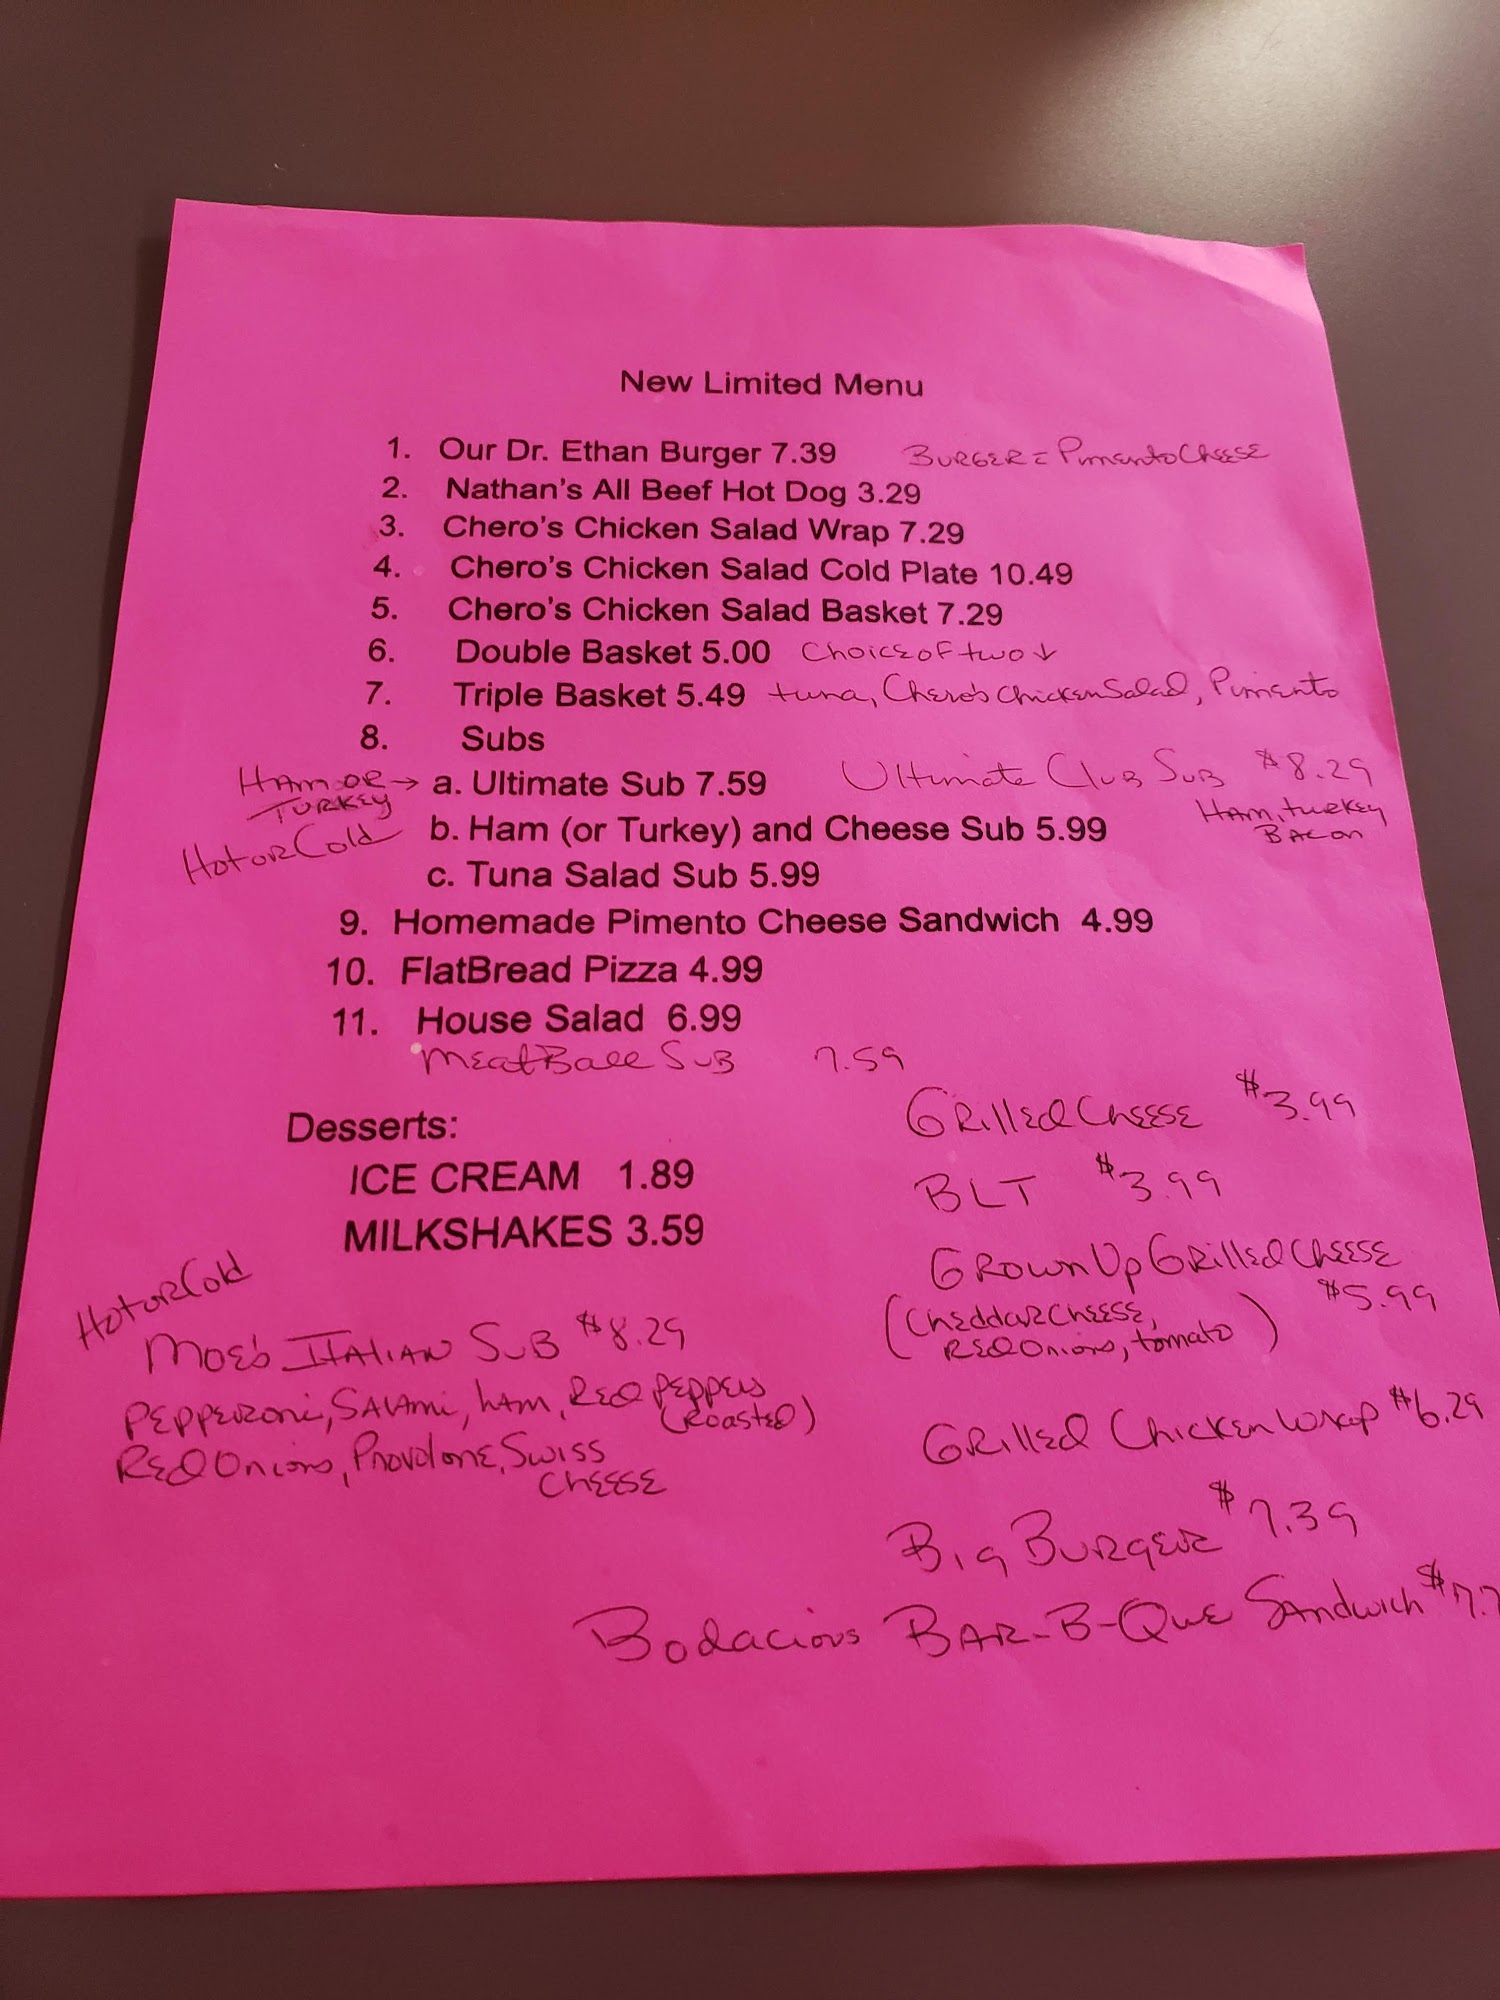 New Limited Menu
1. Our Dr. Ethan Burger 7.39 BURGER = Pimento Cheese
2. Nathan's All Beef Hot Dog 3.29
3. Chero's Chicken Salad Wrap 7.29
4. Chero's Chicken Salad Cold Plate 10.49
5. Chero's Chicken Salad Basket 7.29
6. Double Basket 5.00 Choice of two ↓
7. Triple Basket 5.49 tuna, Chero's Chicken Salad, Pimento
8. Subs
HAM OR → a. Ultimate Sub 7.59 Ultimate Club Sub $8.29
TURKEY
Ham, turkey
Hot or Cold b. Ham (or Turkey) and Cheese Sub 5.99
Bacon
c. Tuna Salad Sub 5.99
9. Homemade Pimento Cheese Sandwich 4.99
10. FlatBread Pizza 4.99
11. House Salad 6.99
MeatBall Sub 7.59
Desserts:
ICE CREAM 1.89
MILKSHAKES 3.59
Grilled Cheese $3.99
BLT $3.99
Grown Up Grilled Cheese
$5.99
(Cheddar Cheese,
Red Onions, tomato)
Grilled Chicken Wrap $6.29
Big Burger $7.39
Bodacious BAR-B-Que Sandwich
Hot or Cold
Moe's ITALIAN SUB $8.29
Pepperoni, SALAmi, ham, Red Peppers
(Roasted)
Red Onions, Provolone, Swiss
Cheese